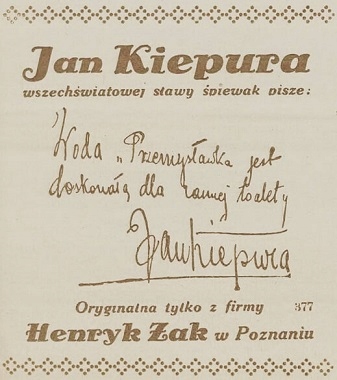 Jan Kiepura
wszechświatowej sławy śpiewak pisze:
Woda „Przemysławka jest
doskonałą dla rannej toalety
Jan Kiepura
Oryginalna tylko z firmy 377
Henryk Żak w Poznaniu